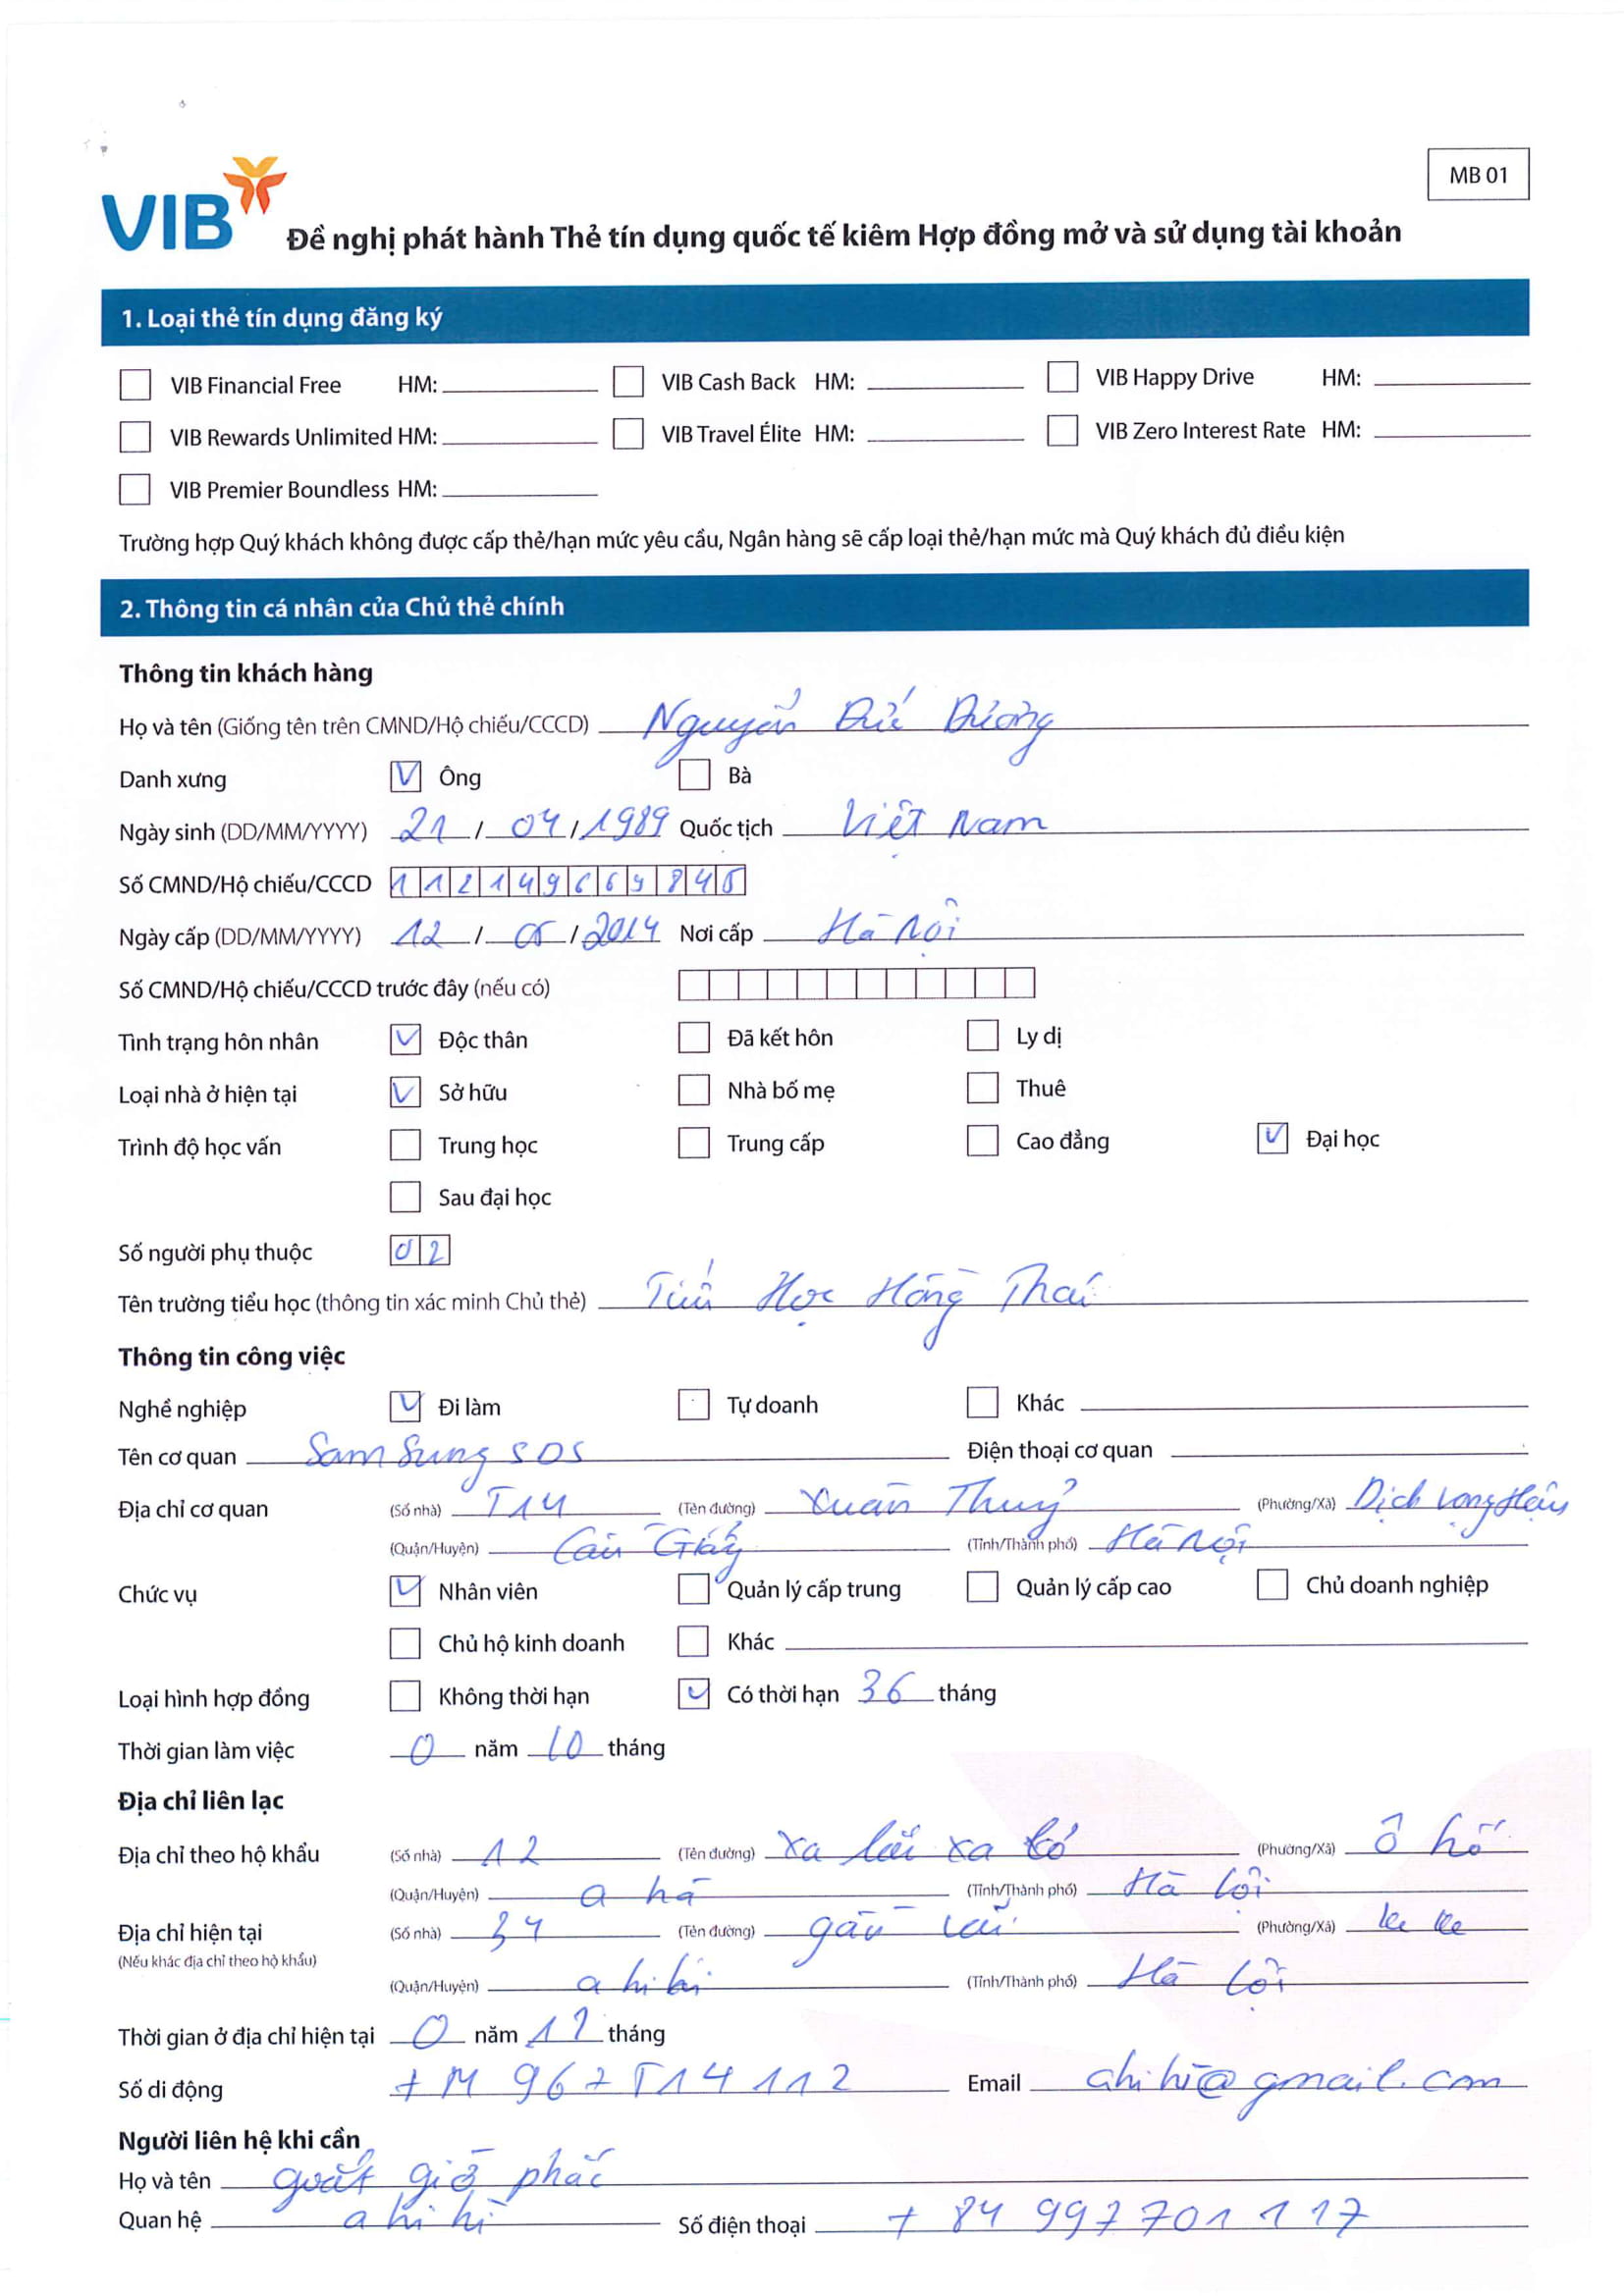 MB 01
VIB
Đề nghị phát hành Thẻ tín dụng quốc tế kiêm Hợp đồng mở và sử dụng tài khoản
1. Loại thẻ tín dụng đăng ký
VIB Financial Free HM: VIB Cash Back HM: VIB Happy Drive HM:
VIB Rewards Unlimited HM: VIB Travel Élite HM: VIB Zero Interest Rate HM:
VIB Premier Boundless HM:
Trường hợp Quý khách không được cấp thẻ/hạn mức yêu cầu, Ngân hàng sẽ cấp loại thẻ/hạn mức mà Quý khách đủ điều kiện
2. Thông tin cá nhân của Chủ thẻ chính
Thông tin khách hàng
Họ và tên (Giống tên trên CMND/Hộ chiếu/CCCD) Nguyễn Đức Dương
Danh xưng V Ông Bà
Ngày sinh (DD/MM/YYYY) 21 / 04 / 1989 Quốc tịch Việt Nam
Số CMND/Hộ chiếu/CCCD
Ngày cấp (DD/MM/YYYY) 12 / 05 / 2014 Nơi cấp Hà Nội
Số CMND/Hộ chiếu/CCCD trước đây (nếu có)
Tình trạng hôn nhân V Độc thân Đã kết hôn Ly dị
Loại nhà ở hiện tại V Sở hữu Nhà bố mẹ Thuê
Trình độ học vấn Trung học Trung cấp Cao đẳng V Đại học
Sau đại học
Số người phụ thuộc 02
Tên trường tiểu học (thông tin xác minh Chủ thẻ) Tiểu Học Hồng Thái
Thông tin công việc
Nghề nghiệp V Đi làm Tự doanh Khác
Tên cơ quan SamSung SDS Điện thoại cơ quan
Địa chỉ cơ quan (Số nhà) (Tên đường) Xuân Thuỷ (Phường/Xã) Dịch Vọng Hậu
(Quận/Huyện) Cầu Giấy (Tỉnh/Thành phố) Hà Nội
Chức vụ V Nhân viên Quản lý cấp trung Quản lý cấp cao Chủ doanh nghiệp
Chủ hộ kinh doanh Khác
Loại hình hợp đồng Không thời hạn V Có thời hạn 36 tháng
Thời gian làm việc 0 năm 10 tháng
Địa chỉ liên lạc
Địa chỉ theo hộ khẩu (Số nhà) 12 (Tên đường) xa xa (Phường/Xã) ô hố
(Quận/Huyện) a há (Tỉnh/Thành phố) Hà Lội
Địa chỉ hiện tại (Số nhà) 34 (Tên đường) gầu (Phường/Xã) ke ke
(Nếu khác địa chỉ theo hộ khẩu)
(Quận/Huyện) a hi hi (Tỉnh/Thành phố) Hà Lội
Thời gian ở địa chỉ hiện tại 0 năm tháng
Số di động Email ahihi@gmail.com
Người liên hệ khi cần
Họ và tên phắc
Quan hệ a hi hi Số điện thoại + 84 997701117